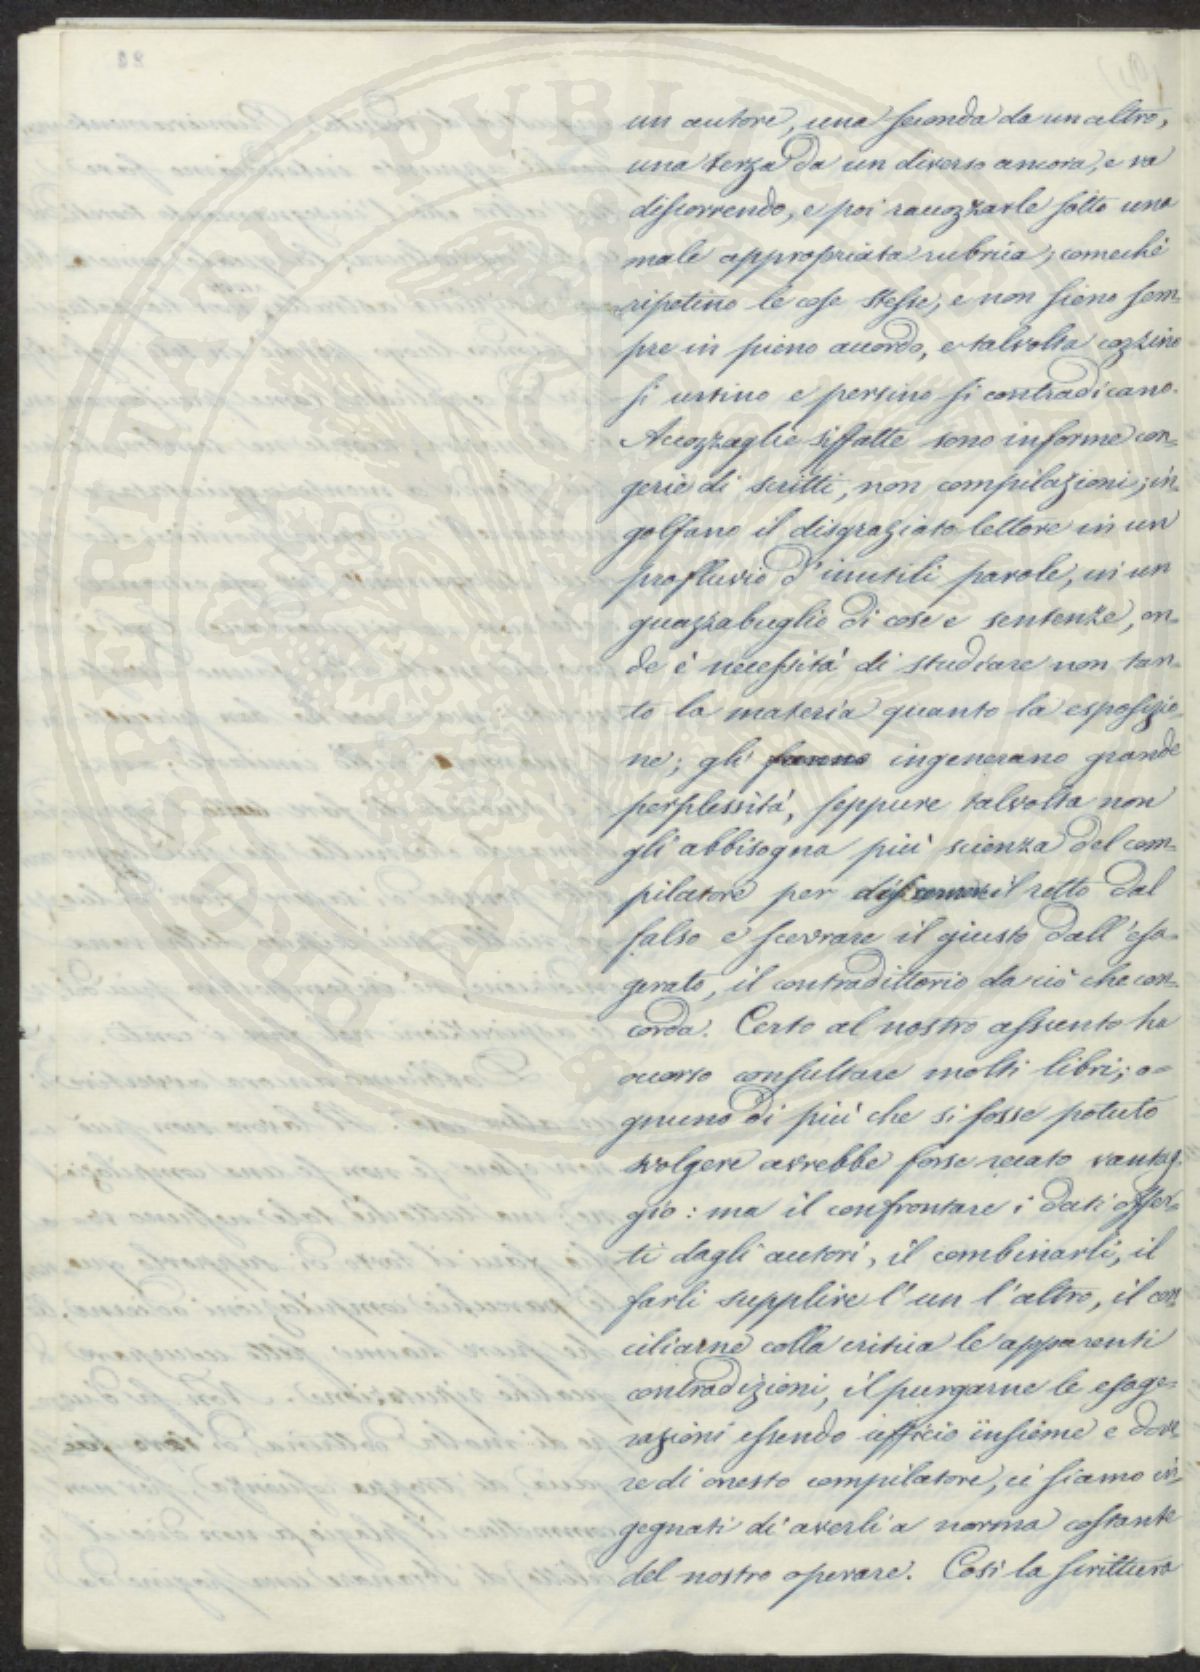 un autore, una seconda da un altro,
una terza da un diverso ancora, e va
discorrendo, e poi racozzarle sotto una
male appropriata rubrica; comechè
ripetino le cose stesse, e non sieno sem-
pre in pieno accordo, e talvolta cozzino
si urtino e persino si contradicano.
Accozzaglie siffatte sono informe con-
gerie di scritti, non compilazioni; in-
golfano il disgraziato lettore in un
profluvio d'inutili parole, in un
guazzabuglio di cose e sentenze, on-
de è necessità di studiare non tan-
to la materia quanto la esposizio-
ne; gli ingenerano grande
perplessità, seppure talvolta non
gli abbisogna più scienza del com-
pilatore per discernere il retto dal
falso e scevrare il giusto dall'esa-
gerato, il contradittorio da ciò che con-
corda. Certo al nostro assunto ha
occorso consultare molti libri; o-
gnuno di più che si fosse potuto
svolgere avrebbe forse recato vantag-
gio: ma il confrontare i dati offer-
ti dagli autori, il combinarli, il
farli supplire l'un l'altro, il con-
ciliarne colla critica le apparenti
contradizioni, il purgarne le esage-
razioni essendo ufficio insieme e dove-
re di onesto compilatore, ci siamo in-
gegnati di averli a norma costante
del nostro operare. Così la scrittura
PVBLI